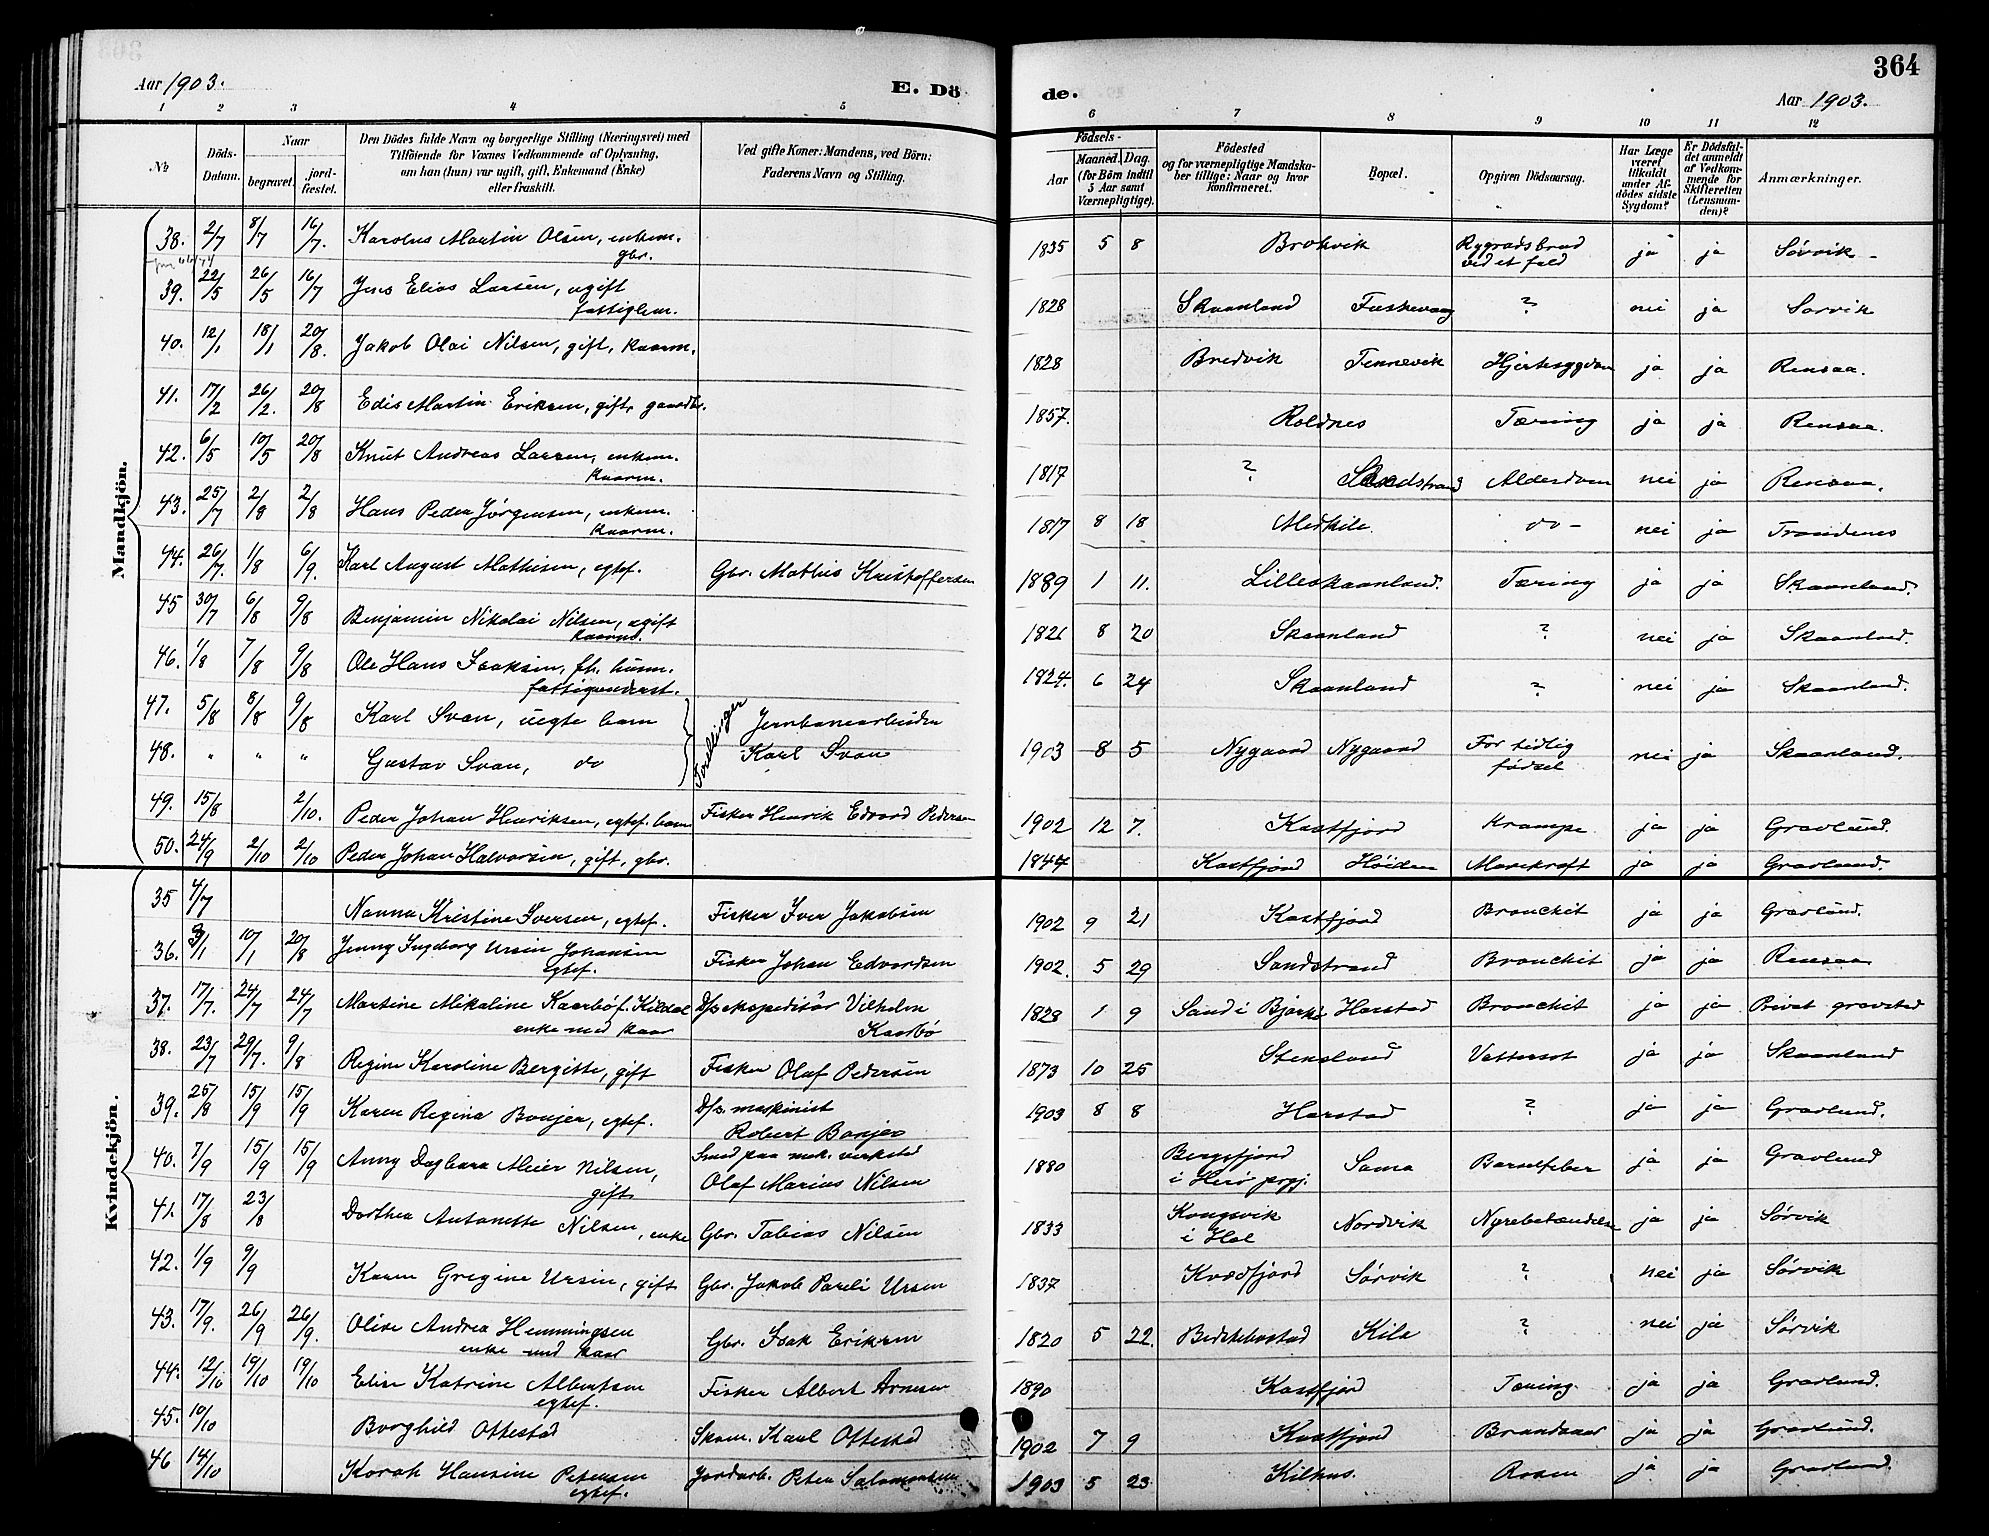 364
Aar 1903. E. Dö de. Aar 1903.
1 2 3 4 5 6 7 8 9 10 11 12
№ Döds-Datum. Naar begravet. jord-fæstet. Den Dödes fulde Navn og borgerlige Stilling (Næringsvei) med Tilföiende for Voxnes Vedkommende af Oplysning, om han (hun) var ugift, gift, Enkemand (Enke) eller fraskilt. Ved gifte Koner: Mandens, ved Börn: Faderens Navn og Stilling. Födsels- Aar Maaned. Dag. (for Börn indtil 5 Aar samt Værnepligtige). Födested og for værnepligtige Mandska-ber tillige: Naar og hvor konfirmeret. Bopæl. Opgiven Dödsaarsag. Har Læge været tilkaldt under Af-dödes sidste Sygdom? Er Dödsfal-det anmeldt af Vedkom-mende for Skifteretten (Lensman-den)? Anmærkninger.
Mandkjön.
38. 2/7 8/7 16/7. Karolus Martin Olsen, enkem. gbr. 1835 5 8 Brokvik Rygradsbrud ved et fald ja ja Sørvik
39. 22/5 26/5 16/7 Jens Elias Larsen, ugift fattiglem. 1828 Skaanland Fuskevaag ? nei ja Sørvik
40. 12/1 18/1 20/8. Jakob Olai Nilsen, gift, kaarm. 1828 Bredvik Tennevik Hjertesygdom ja ja Rensaa.
41. 17/2 26/2. 20/8 Edis Martin Eriksen, gift, gaardbr. 1857. Roldnes Tæring ja ja Rensaa.
42. 6/5 10/5 20/8 Knut Andreas Larsen, enkem. kaarm. 1817 ? Sandstrand Alderdom nei ja Rensaa.
43. 25/7 2/8 2/8 Hans Peder Jørgensen, enkem. kaarm. 1817 8 18 Medkila do - nei ja Trondenes
44. 26/7. 1/8 6/9. Karl August Mathisen, egtef. Gbr. Mathis Kristoffersen 1889 1 11. Lilleskaanland. Tæring ja ja Skaanland.
45 30/7 6/8 9/8 Benjamin Nikolai Nilsen, ugift kaarm. 1826 8 20 Skaanland ? nei ja Skaanland.
46. 1/8 7/8 9/8 Ole Hans Isaksen, fh. husm. fattigunderst. 1824. 6 24 Skaanland ? nei ja Skaanland.
47. 5/8 8/8 9/8 Karl Svan, uegte barn Tvillinger Jernbanearbeider
48. " " " Gustav Svan, do Karl Svan 1903 8 5 Nygaard Nygaard For tidlig fødsel nei ja Skaanland.
49. 15/8 2/10. Peder Johan Henriksen, egtef. barn Fisker Henrik Edvard Pedersen 1902 12 7. Kastfjord Krampe ja ja Gravlund.
50. 24/9 2/10 2/10 Peder Johan Halvorsen, gift, gbr. 1844 Kastfjord Høiden Mavekræft ja ja Gravlund.
Kvindekjön.
35 4/7 Nanna Kristine Iversen, egtef. Fisker Iver Jakobsen 1902 9 21 Kastfjord Bronchit ja ja Gravlund.
36. 3/1 10/1 20/8 Jenny Ingeborg Ursin Johansen egtef. Fisker Johan Edvardsen 1902. 5 29 Sandstrand Bronchit ja ja Rensaa
37. 17/7. 24/7 24/7 Martine Mikaline Kaarbø f. Kildal enke med kaar D/s ekspeditör Vilhelm Kaarbø 1828 1 9 Sand i Bjarkø Harstad Bronchit ja ja Privat gravsted
38. 23/7 29/7. 9/8 Regine Karoline Bergitte, gift Fisker Olaf Pedersen 1873 10 25 Stensland Vattersot ja ja Skaanland
39. 25/8 15/9 15/9 Karen Regina Bonjer, egtef. D/s. maskinist Robert Bonjer 1903 8 8 Harstad ? ja ja Gravlund.
40. 7/9 15/9 15/9 Anny Dagbara Meier Nilsen, gift Smed paa mek. verksted Olaf Marius Nilsen 1880 Bergsfjord i Herø prgj. Sama Barselfeber ja ja Gravlund
41. 17/8 23/8 Dorthea Antonette Nilsen, enke Gbr. Tobias Nilsen 1833 Kongsvik i Hol Nordvik Nyrebetændelse ja ja Sørvik
42. 1/9 9/9 Karen Gregine Ursin, gift Gbr. Jakob Pareli Ursin 1837 Kvædfjord Sørvik ? nei ja Sørvik
43. 17/9. 26/9 26/9. Oline Andrea Hemmingsen enke med kaar Gbr. Isak Eriksen 1820 5 22. Kila ? nei ja Sørvik
44. 12/10 19/10 19/10 Elise Katrine Albertsen egtef. Fisker Albert Arnesen 1890 Kastfjord Tæring ja ja Gravlund.
45. 10/10 Borghild Ottestad Skom. Karl Ottestad 1902 7 9 Kastfjord Brandsaar ja ja Gravlund.
46 14/10 Korah Hansine Petersen egtef. Jordarb. Peter Salomonsen 1903 5 23 Kilhus. Rosen ja ja Gravlund.